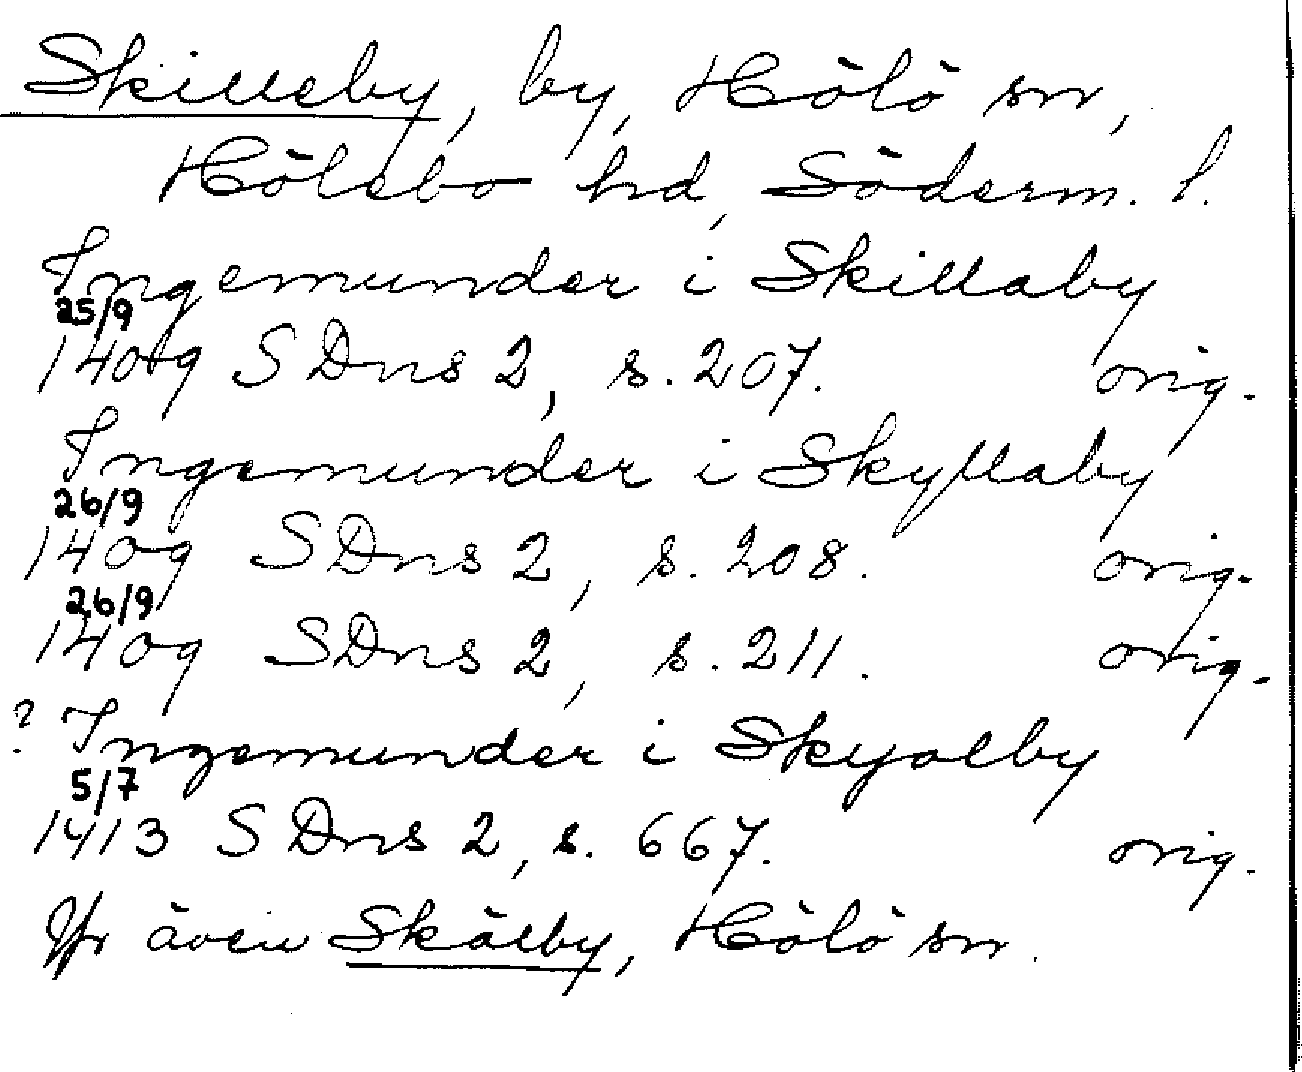 Skilleby, by, Hölö sn,
Hölebo hd, Söderm. l.
Ingemunder i Skillaby
25/9
1409 SDns 2, s. 207. orig.
Ingemunder i Skyllaby
26/9
1409 SDns 2, s. 208. orig.
26/9
1409 SDns 2, s. 211. orig.
? Ingemunder i Skyolby
5/7
1413 SDns 2, s. 667. orig.
Jfr även Skälby, Hölö sn.